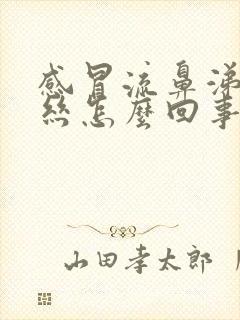 感冒流鼻涕
絲怎麼回事
山田孝太郎